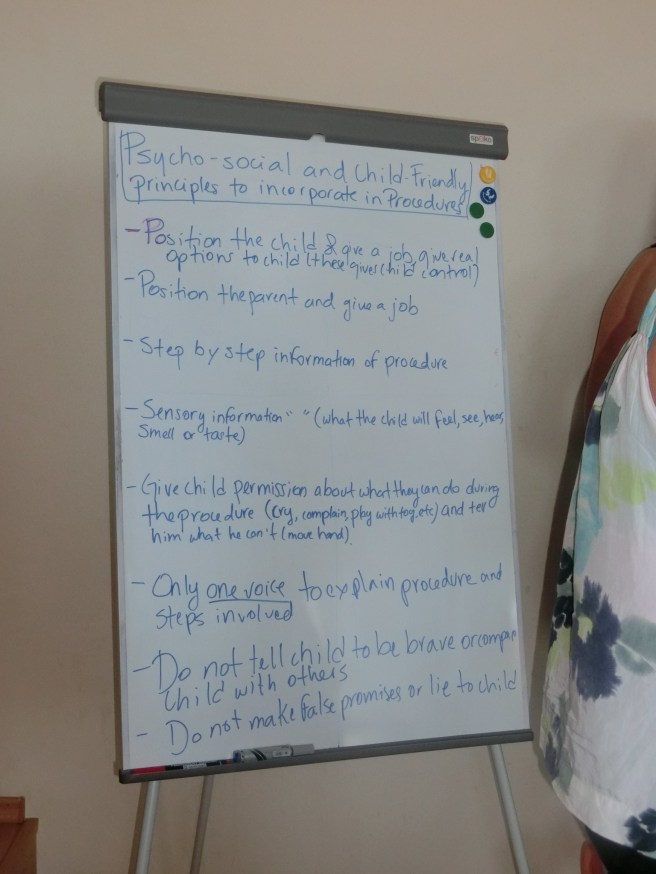 Psycho-social and Child-Friendly
principles to incorporate in Procedures
- Position the child & give a job, give real
options to child (these gives child control)
- Position the parent and give a job
- Step by step information of procedure
- Sensory information " " (what the child will feel, see, hear,
smell or taste)
- Give child permission about what they can do during
the procedure (cry, complain, play with toy, etc) and tell
him what he can't (move hand).
- Only one voice to explain procedure and
steps involved
- Do not tell child to be brave or compare
child with others
- Do not make false promises or lie to child